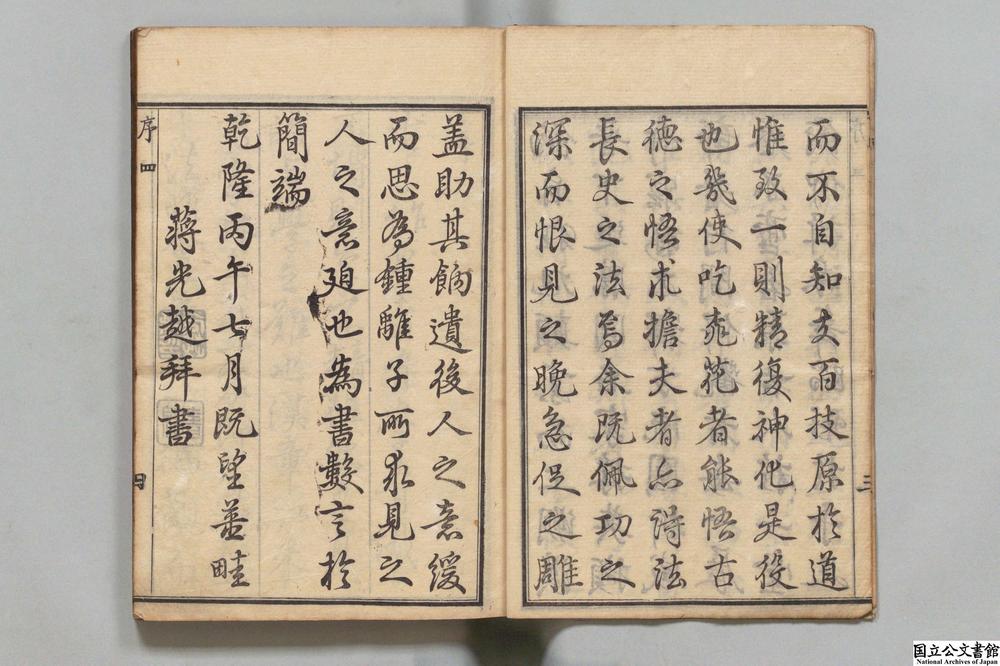 而不自知夫百技原於道
惟致一則精復神化是役
也幾使吃者能悟古
德之悟求擔夫者亦得法
長史之法焉余既佩功之
深而恨見之晚急促之雕
三
盖助其餉遺後人之意緩
而思為鍾離子所求見之
人之意迫也為書數言於
簡端
乾隆丙午七月既望畦
蔣光越拜書
序四
国立公文書館
National Archives of Japan